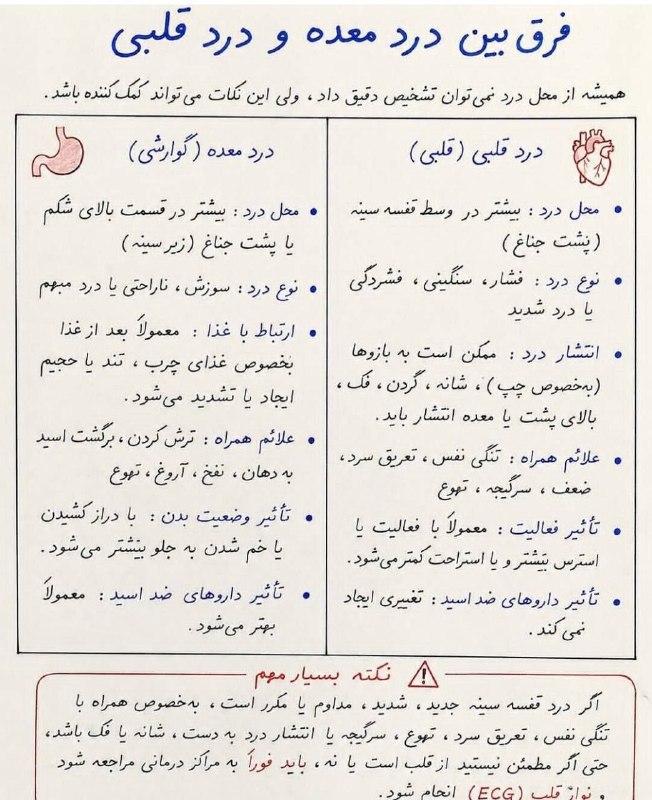 فرق بین درد معده و درد قلبی
همیشه از محل درد نمی‌توان تشخیص دقیق داد، ولی این نکات می‌تواند کمک‌کننده باشد.
درد قلبی (قلبی)
• محل درد: بیشتر در وسط قفسه سینه
(پشت جناغ)
• نوع درد: فشار، سنگینی، فشردگی
یا درد شدید
• انتشار درد: ممکن است به بازوها
(به‌خصوص چپ)، شانه، گردن، فک،
بالای پشت یا معده انتشار یابد.
• علائم همراه: تنگی نفس، تعریق سرد،
ضعف، سرگیجه، تهوع
• تأثیر فعالیت: معمولاً با فعالیت یا
استرس بیشتر و با استراحت کمتر می‌شود.
• تأثیر داروهای ضد اسید: تغییری ایجاد
نمی‌کند.
درد معده (گوارشی)
• محل درد: بیشتر در قسمت بالای شکم
یا پشت جناغ (زیر سینه)
• نوع درد: سوزش، ناراحتی یا درد مبهم
• ارتباط با غذا: معمولاً بعد از غذا
بخصوص غذای چرب، تند یا حجیم
ایجاد یا تشدید می‌شود.
• علائم همراه: ترش کردن، برگشت اسید
به دهان، نفخ، آروغ، تهوع
• تأثیر وضعیت بدن: با دراز کشیدن
یا خم شدن به جلو بیشتر می‌شود.
• تأثیر داروهای ضد اسید: معمولاً
بهتر می‌شود.
نکته بسیار مهم
اگر درد قفسه سینه جدید، شدید، مداوم یا مکرر است، به‌خصوص همراه با
تنگی نفس، تعریق سرد، تهوع، سرگیجه یا انتشار درد به دست، شانه یا فک باشد،
حتی اگر مطمئن نیستید از قلب است یا نه، باید فوراً به مراکز درمانی مراجعه شود
و نوار قلب (ECG) انجام شود.